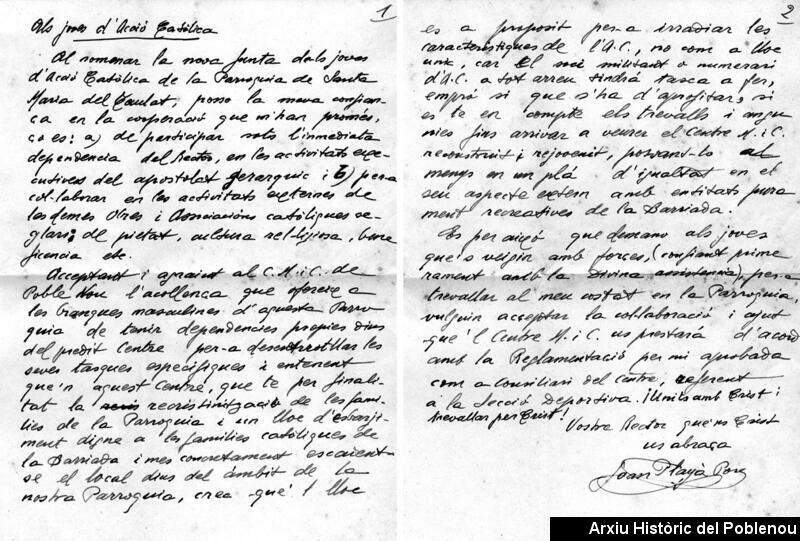 1
Als joves d'Acció Catòlica
Al nomenar la nova Junta dels joves
d'Acció Catòlica de la Parroquia de Santa
Maria del Taulat, posso la meva confian-
ça en la cooperació que m'han promés,
ço es: a) de participar sots l'inmediata
dependencia del Rector, en les activitats exe-
cutives del apostolat gerarquic i b) per-a
col·laborar en les activitats externes de
les demes Obres i Associacions catòliques se-
glars; de pietat, cultura rel·ligiosa, bene
ficencia etc.
Acceptant i agraint al C.M.i C. de
Poble Nou l'acollença que ofereix a
les branques masculines d'aquesta Parro
quia de tenir dependencies propies dins
del predit Centre per-a desentrotllar les
seves tasques especifiques i entenent
que'n aquest Centre, que te per finali-
tat la recristianització de les fami-
lies de la Parroquia i un lloc d'esbarji-
ment digne a les families catòliques de
la Barriada i mes concretament escaient-
se el local dins del àmbit de la
nostra Parroquia, crec que'l lloc
2
es a proposit per-a irradiar les
caracteristiques de l'A.C., no com a lloc
unic, car el militant o numerari
d'A.C. a tot arreu tindrá tasca a fer,
empró si que s'ha d'aprofitar, si
es te en compte els trevalls i angu
nies fins arrivar a veurer el Centre M.i C.
reconstruit i rejovenit, possant-lo al
menys en un plá d'igualtat en el
seu aspecte extern amb entitats pura
ment recreatives de la Barriada.
Es per aixó que demano als joves
que's vegin amb forces, (confiant prime
rament amb la Divina assistencia), per-a
trevallar al meu costat en la Parroquia,
vulguin acceptar la col·laboració i ajut
que'l Centre M.i C. us prestará d'acord
amb la Reglamentació per mi aprobada
com a Consiliari del Centre, referent
a la Secció Deportiva. ¡Units amb Crist i
trevallar per Crist!
Vostre Rector que'ns Crist
us abraça
Joan Playà Pou
Arxiu Històric del Poblenou